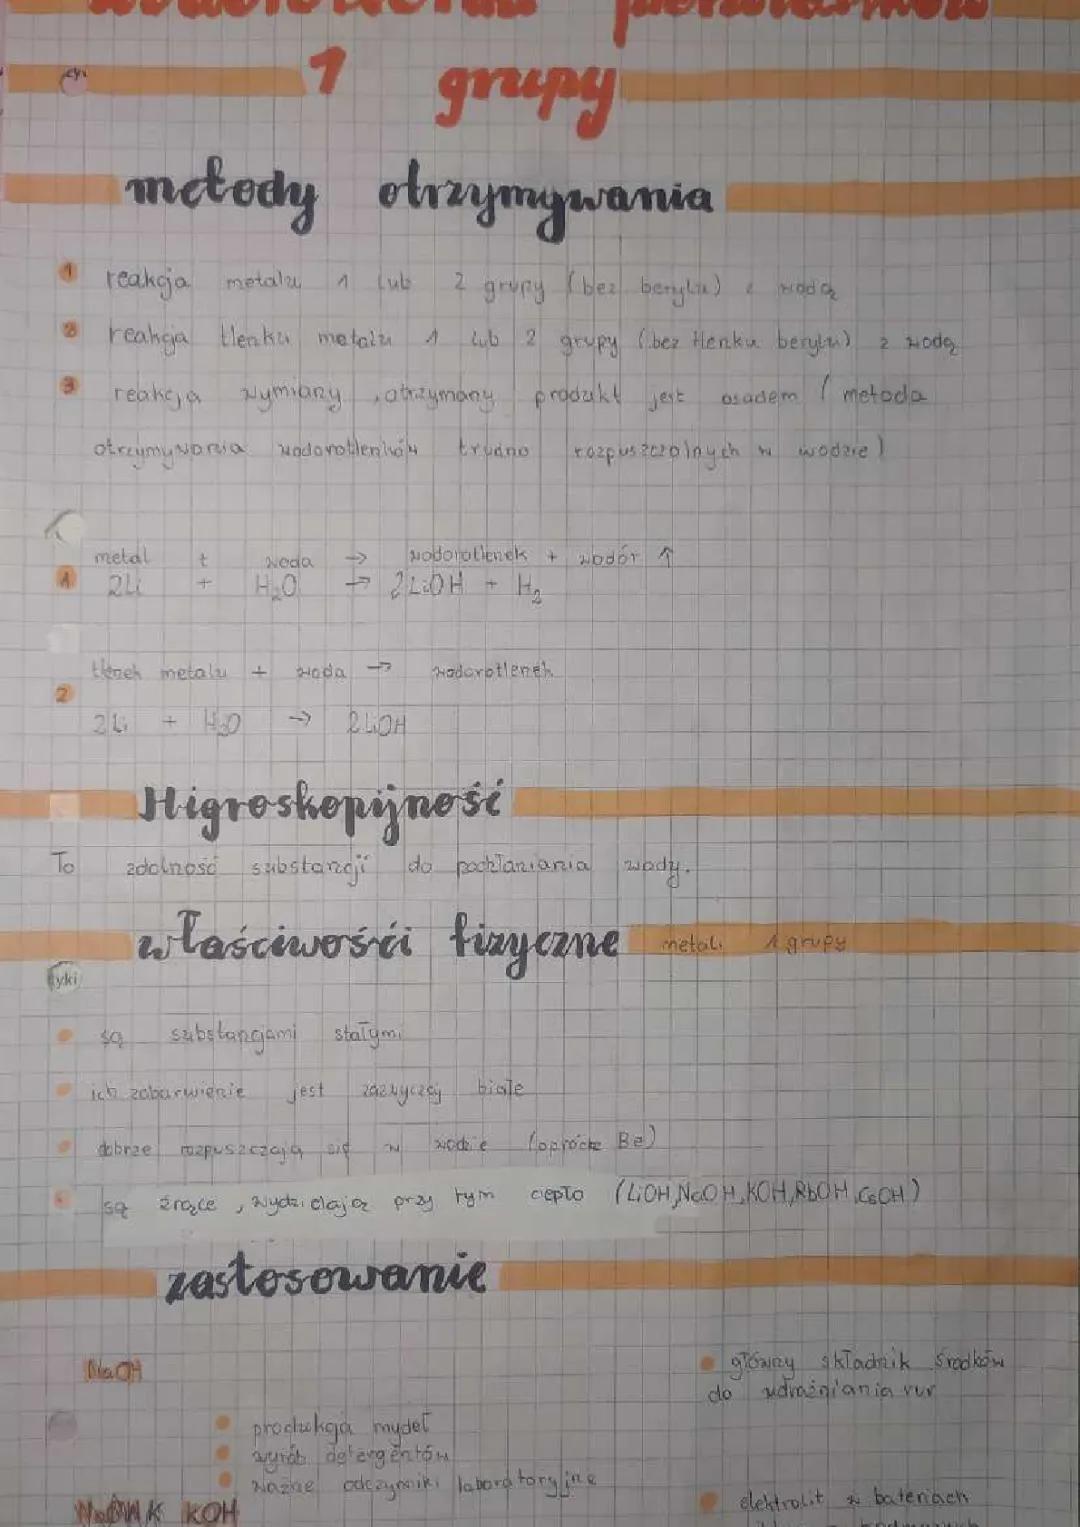 1 grupy
metody otrzymywania
1 reakcja metalu 1 lub 2 grupy (bez berylu) z wodą
2 reakcja tlenku metalu 1 lub 2 grupy (bez tlenku berylu) z wodą
3 reakcja wymiany, otrzymany produkt jest osadem (metoda
otrzymywania wodorotlenków trudno rozpuszczalnych w wodzie)
metal + woda → wodorotlenek + wodór ↑
1 2Li + H₂O → 2LiOH + H₂
tlenek metalu + woda → wodorotlenek
2 2Li + H₂O → 2LiOH
Higroskopijność
To zdolność substancji do pochłaniania wody.
właściwośći fizyczne metali 1 grupy
tyki
są substancjami stałymi
ich zabarwienie jest zazwyczaj białe
dobrze rozpuszczają się w wodzie (oprócz Be)
są żrące, wydzielając przy tym ciepło (LiOH, NaOH, KOH, RbOH, CsOH)
zastosowanie
NaOH
główny składnik środków
do udrażniania rur
produkcja mydeł
wyrób detergentów
ważne odczynniki laboratoryjne
KOH
elektrolit w bateriach